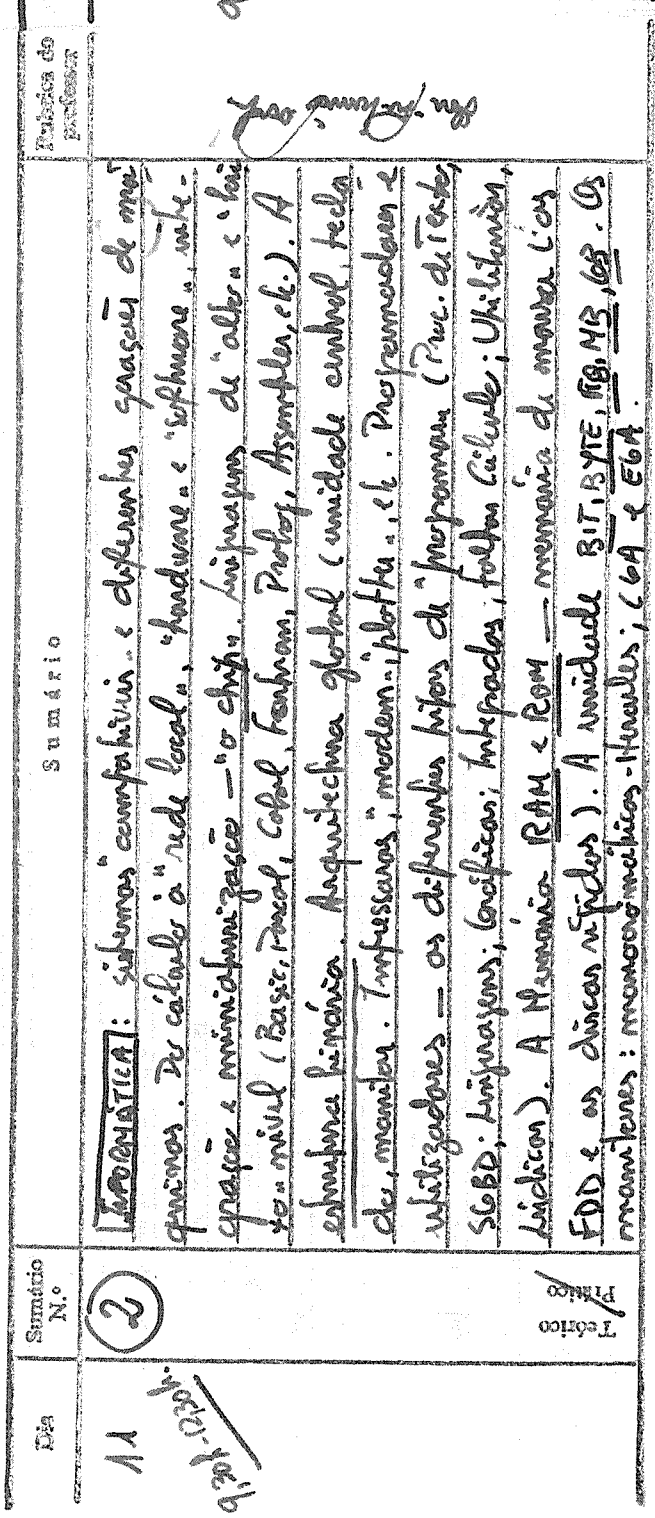 Dia
Sumário N.º
Sumário
Rubrica do professor
11
9,30h-12,30h.
2
Teórico
Prático
INFORMÁTICA: sistemas "compatíveis" e diferentes gerações de má
quinas. Do cálculo à "rede local", "hardware" e "software", inte-
gração e miniaturização – "o chip". Linguagens de "alto" e "bai
xo" nível (Basic, Pascal, Cobol, Fortran, Prolog, Assembler, etc.). A
estrutura binária. Arquitectura global (unidade central, tecla
do, monitor. Impressoras, "modem", "plotter", etc. Programadores e
utilizadores – os diferentes tipos de "programas" (Proc. de Texto,
SGBD; Linguagens; Gráficos; Integrados; Folhas Cálculo; Utilitários,
Lúdicos). A Memória RAM e ROM – memória de massa (os
FDD e os discos rígidos). A unidade BIT, BYTE, KB, MB, GB. Os
monitores: monocromáticos-Hercules; CGA e EGA.